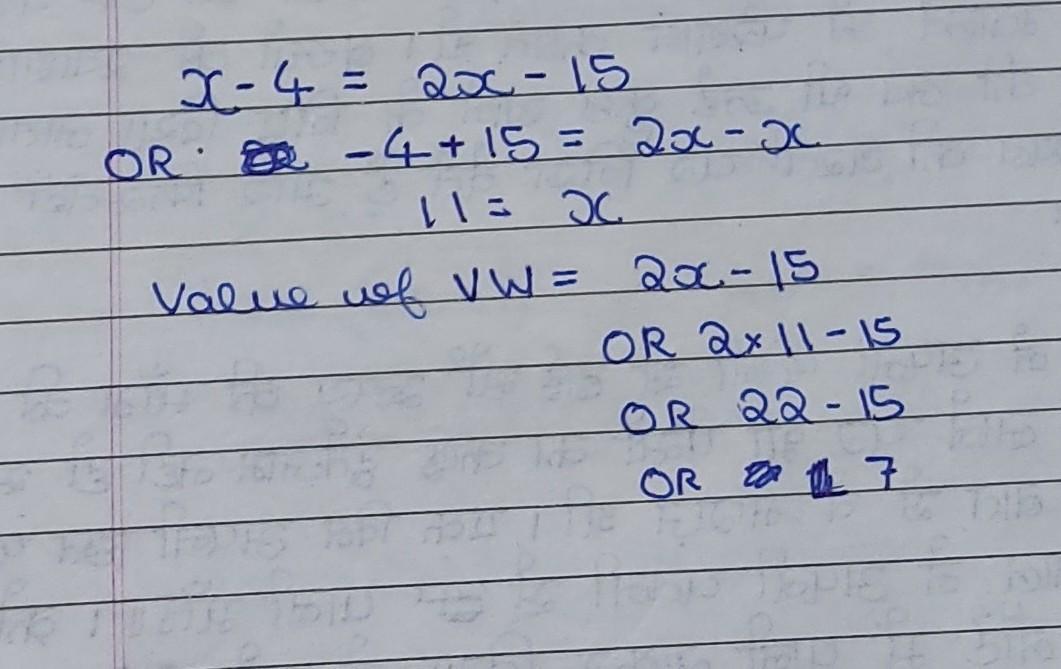 x - 4 = 2x - 15
OR. -4 + 15 = 2x - x
11 = x
Value of VW = 2x - 15
OR 2 x 11 - 15
OR 22 - 15
OR 7